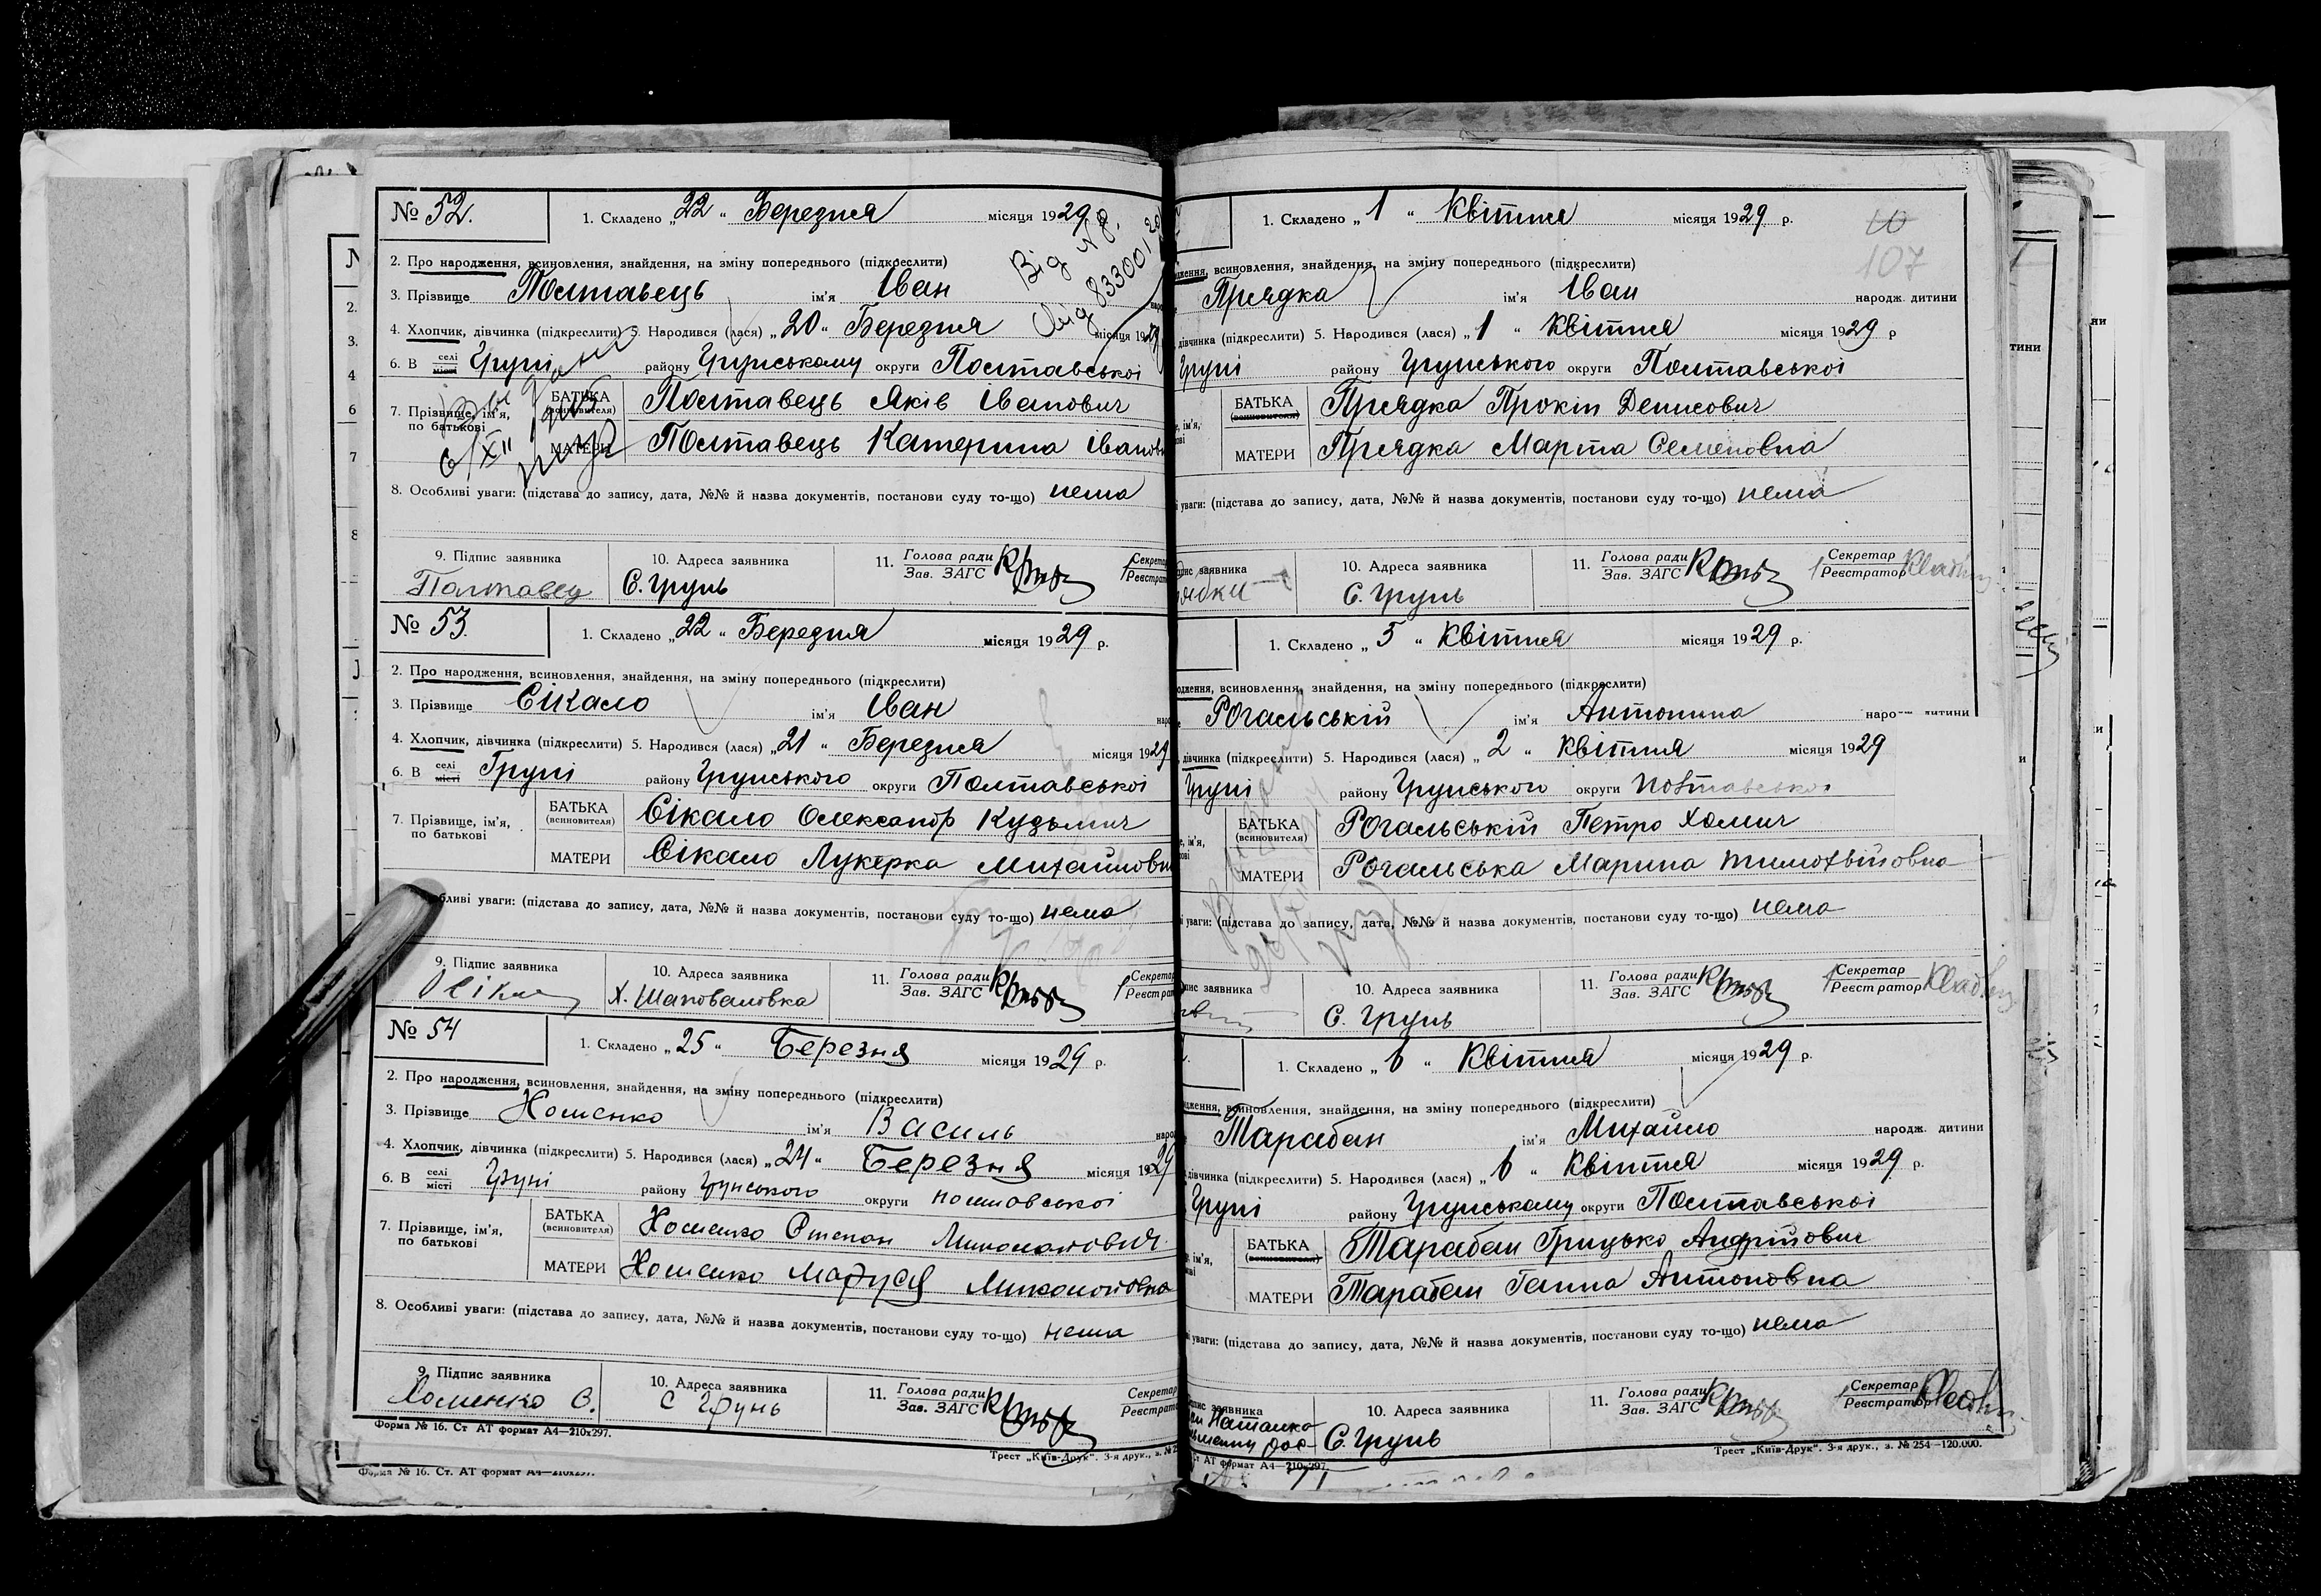 № 52. 1. Складено „22“ Березня місяця 1929 р.
2. Про народження, всиновлення, знайдення, на зміну попереднього (підкреслити)
3. Прізвище Полтавець ім'я Іван
4. Хлопчик, дівчинка (підкреслити) 5. Народився (лася) „20“ Березня місяця 1929
6. В селі місті Груні району Грунському округи Полтавської
7. Прізвище, ім'я, по батькові БАТЬКА (всиновителя) Полтавець Яків Іванович
МАТЕРИ Полтавець Катерина Іванов
8. Особливі уваги: (підстава до запису, дата, №№ й назва документів, постанови суду то-що) нема
9. Підпис заявника 10. Адреса заявника 11. Голова ради Зав. ЗАГС Секретар Реєстрат
Полтавец С. Грунь
№ 53. 1. Складено „22“ Березня місяця 1929 р.
2. Про народження, всиновлення, знайдення, на зміну попереднього (підкреслити)
3. Прізвище Сікало ім'я Іван
4. Хлопчик, дівчинка (підкреслити) 5. Народився (лася) „21“ Березня місяця 1929
6. В селі місті Груні району Грунського округи Полтавської
7. Прізвище, ім'я, по батькові БАТЬКА (всиновителя) Сікало Олександр Кузьмич
МАТЕРИ Сікало Лукерка Михайловн
бливі уваги: (підстава до запису, дата, №№ й назва документів, постанови суду то-що) нема
9. Підпис заявника 10. Адреса заявника 11. Голова ради Зав. ЗАГС Секретар Реєстрат
Х. Шаповаловка
№ 54 1. Складено „25“ Березня місяця 1929 р.
2. Про народження, всиновлення, знайдення, на зміну попереднього (підкреслити)
3. Прізвище Хоменко ім'я Василь
4. Хлопчик, дівчинка (підкреслити) 5. Народився (лася) „24“ Березня місяця 1929
6. В селі місті Груні району Грунського округи полтавської
7. Прізвище, ім'я, по батькові БАТЬКА (всиновителя) Хоменко Степан
МАТЕРИ Хоменко Маруся
8. Особливі уваги: (підстава до запису, дата, №№ й назва документів, постанови суду то-що) нема
9. Підпис заявника 10. Адреса заявника 11. Голова ради Зав. ЗАГС Секретар Реєстрато
Хоменко С. С Грунь
Форма № 16. Ст АТ формат А4—210х297.
Трест „Київ-Друк“. 3-я друк., з. № 2
Форма № 16. Ст. АТ формат А4—210х297.
1. Складено „1“ Квітня місяця 1929 р.
107
дження, всиновлення, знайдення, на зміну попереднього (підкреслити)
Прядка ім'я Іван народж. дитини
дівчинка (підкреслити) 5. Народився (лася) „1“ Квітня місяця 1929 р
Груні району Грунського округи Полтавської
БАТЬКА (всиновителя) Прядка Прокіп Денисович
МАТЕРИ Прядка Марта Семеновна
уваги: (підстава до запису, дата, №№ й назва документів, постанови суду то-що) нема
пис заявника 10. Адреса заявника 11. Голова ради Зав. ЗАГС Секретар Реєстратор
С. Грунь
1. Складено „5“ Квітня місяця 1929 р.
одження, всиновлення, знайдення, на зміну попереднього (підкреслити)
Рогальській ім'я Антонина наро дитини
дівчинка (підкреслити) 5. Народився (лася) „2“ Квітня місяця 1929
Груні району Грунського округи Полтавської
БАТЬКА (всиновителя) Рогальській Петро Хомич
МАТЕРИ Рогальська Марина Тимохвійовна
уваги: (підстава до запису, дата, №№ й назва документів, постанови суду то-що) нема
пис заявника 10. Адреса заявника 11. Голова ради Зав. ЗАГС Секретар Реєстратор
С. Грунь
1. Складено „6“ Квітня місяця 1929 р.
дження, всиновлення, знайдення, на зміну попереднього (підкреслити)
Тарабан ім'я Михайло народж. дитини
дівчинка (підкреслити) 5. Народився (лася) „6“ Квітня місяця 1929 р.
Груні району Грунському округи Полтавської
БАТЬКА (всиновителя) Тарабан Грицько Андрійович
МАТЕРИ Тарабан Ганна Антоновна
уваги: (підстава до запису, дата, №№ й назва документів, постанови суду то-що) нема
пис заявника 10. Адреса заявника 11. Голова ради Зав. ЗАГС Секретар Реєстратор
С. Грунь
Ст АТ формат А4—210х297.
Трест „Київ-Друк“. 3-я друк., з. № 254—120.000.